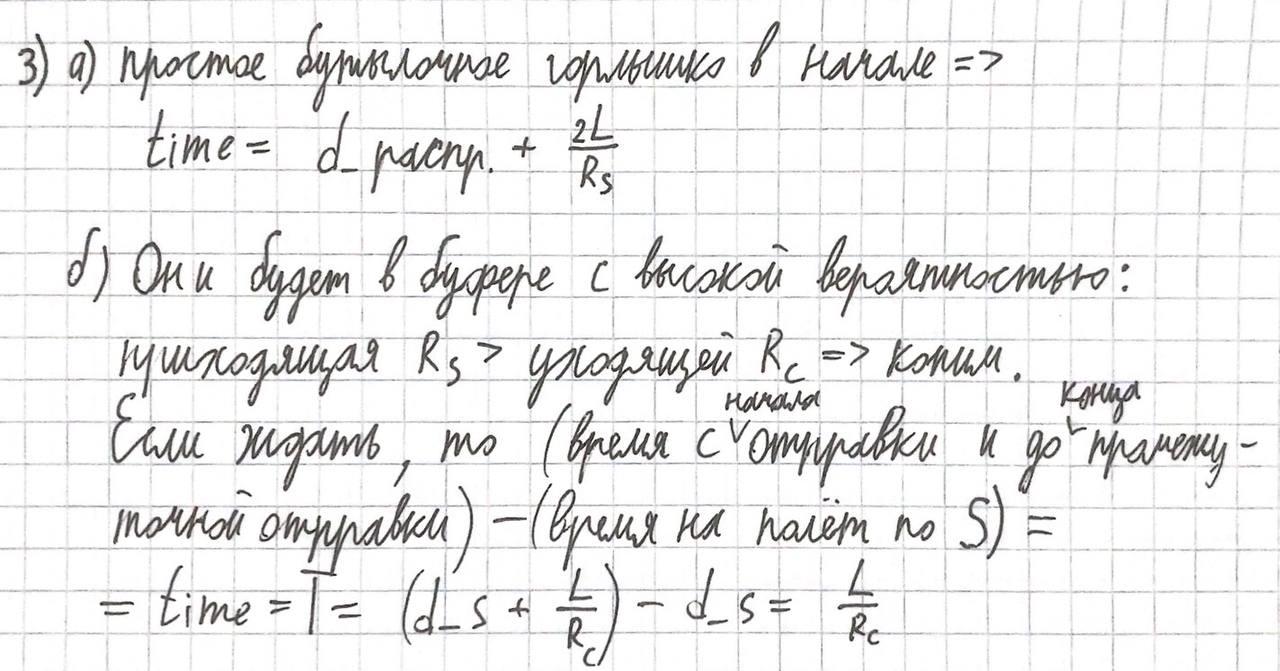 3) а) простое бутылочное горлышко в начале =>
time = d_распр. + 2L/R_S
б) Они будет в буфере с высокой вероятностью:
приходящая R_S > уходящей R_C => копим.
Если ждать, то (время с начала отправки и до конца промежу-
точной отправки) – (время на полёт по S) =
= time = T = (d_s + L/R_C) – d_s = L/R_C